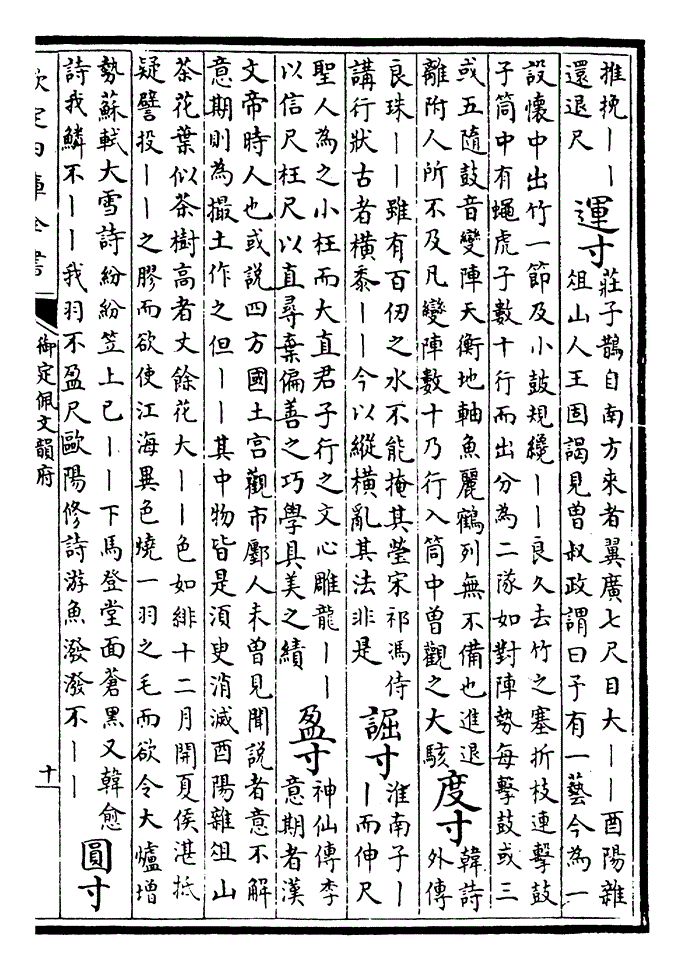 推挽丨丨
還退尺
運寸
莊子鵲自南方來者翼廣七尺目大丨丨酉陽雜
俎山人王固謁見曾叔政謂曰子有一藝今為一
設懷中出竹一節及小鼓規纔丨丨良久去竹之塞折枝連擊鼓
子筒中有蠅虎子數十行而出分為二隊如對陣勢每擊鼓或三
或五隨鼓音變陣天衡地軸魚麗鶴列無不備也進退
離附人所不及凡變陣數十乃行入筒中曾觀之大駭
度寸
韓詩
外傳
良珠丨丨雖有百仞之水不能掩其瑩宋祁馮侍
講行狀古者橫黍丨丨今以縱橫亂其法非是
誳寸
淮南子丨
丨而伸尺
聖人為之小枉而大直君子行之文心雕龍丨丨
以信尺枉尺以直尋棄偏善之巧學具美之績
盈寸
神仙傳李
意期者漢
文帝時人也或說四方國土宮觀市鄽人未曾見聞說者意不解
意期則為撮土作之但丨丨其中物皆是須臾消滅酉陽雜俎山
茶花葉似茶樹高者丈餘花大丨丨色如緋十二月開夏侯湛抵
疑譬投丨丨之膠而欲使江海異色燒一羽之毛而欲令大爐增
勢蘇軾大雪詩紛紛笠上已丨丨下馬登堂面蒼黑又韓愈
詩我鱗不丨丨我羽不盈尺歐陽修詩游魚潑潑不丨丨
圓寸
欽定四庫全書
御定佩文韻府
十